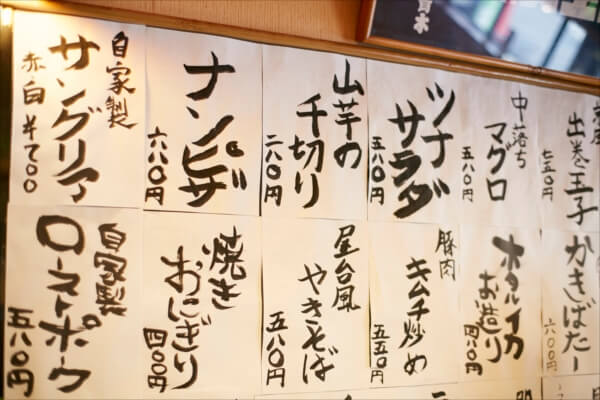 自家製
サングリア
赤白 ¥700
ナンピザ
六八〇円
山芋の
千切り
二八〇円
ツナ
サラダ
五八〇円
中落ち
マグロ
五八〇円
出し巻玉子
七五〇円
自家製
ローストポーク
五八〇円
焼き
おにぎり
四〇〇円
屋台風
やきそば
五八〇円
豚肉
キムチ炒め
五五〇円
ホタルイカ
お造り
四八〇円
かきばたー
六〇〇円